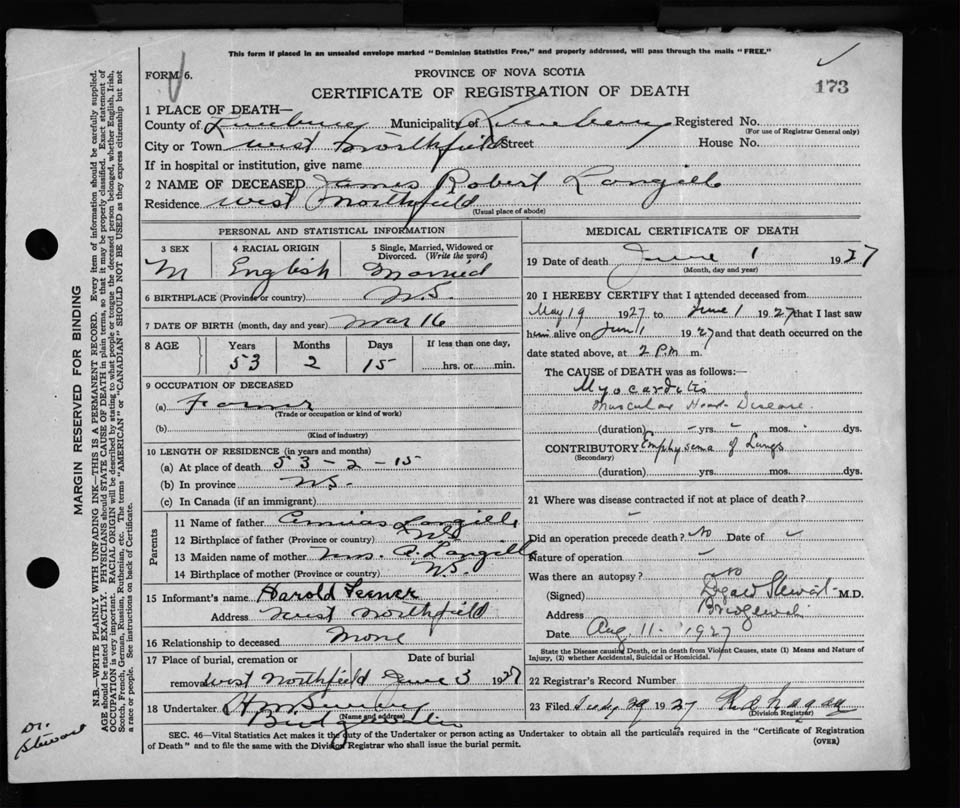 This form if placed in an unsealed envelope marked "Dominion Statistics Free," and properly addressed, will pass through the mails "FREE."
FORM 6.
PROVINCE OF NOVA SCOTIA
173
CERTIFICATE OF REGISTRATION OF DEATH
1 PLACE OF DEATH—
County of Lunenburg Municipality of Lunenburg Registered No.
(For use of Registrar General only)
City or Town West Northfield Street House No.
If in hospital or institution, give name
2 NAME OF DECEASED James Robert Langille
Residence West Northfield
(Usual place of abode)
PERSONAL AND STATISTICAL INFORMATION
3 SEX 4 RACIAL ORIGIN 5 Single, Married, Widowed or Divorced. (Write the word)
M English Married
6 BIRTHPLACE (Province or country) N.S.
7 DATE OF BIRTH (month, day and year) Mar 16
8 AGE Years Months Days If less than one day,
53 2 15 hrs. or min.
9 OCCUPATION OF DECEASED
(a) Farmer
(Trade or occupation or kind of work)
(b)
(Kind of industry)
10 LENGTH OF RESIDENCE (in years and months)
(a) At place of death 53 - 2 - 15
(b) In province N.S.
(c) In Canada (if an immigrant)
Parents
11 Name of father Langille
12 Birthplace of father (Province or country) N.S.
13 Maiden name of mother Mrs. A. Langille
14 Birthplace of mother (Province or country) N.S.
15 Informant's name Harold
Address West Northfield
16 Relationship to deceased None
17 Place of burial, cremation or Date of burial
removal West Northfield June 3 1927
18 Undertaker
(Name and address)
MEDICAL CERTIFICATE OF DEATH
19 Date of death June 1 1927
(Month, day and year)
20 I HEREBY CERTIFY that I attended deceased from
May 19 1927 to June 1 1927 that I last saw
him alive on Jun 1 1927 and that death occurred on
date stated above, at 2 P.M. m.
The CAUSE of DEATH was as follows:—
Myocarditis
Muscular Heart Disease
(duration) - yrs. - mos. dys.
CONTRIBUTORY Emphysema of Lungs
(Secondary)
(duration) yrs. mos. dys.
21 Where was disease contracted if not at place of death?
-
Did an operation precede death? No Date of
Nature of operation
Was there an autopsy? No
(Signed) Stewart M.D.
Address Bridgewater
Date Aug 11 - 1927
State the Disease causing Death, or in death from Violent Causes, state (1) Means and Nature of
Injury, (2) whether Accidental, Suicidal or Homicidal.
22 Registrar's Record Number
23 Filed 29 1927
(Division Registrar)
SEC. 46—Vital Statistics Act makes it the duty of the Undertaker or person acting as Undertaker to obtain all the particulars required in the "Certificate of Registration
of Death" and to file the same with the Division Registrar who shall issue the burial permit.
(OVER)
MARGIN RESERVED FOR BINDING
N.B.—WRITE PLAINLY WITH UNFADING INK—THIS IS A PERMANENT RECORD. Every item of information should be carefully supplied.
AGE should be stated EXACTLY. PHYSICIANS should STATE CAUSE OF DEATH in plain terms, so that it may be properly classified. Exact statement of
OCCUPATION is very important. RACIAL ORIGIN will be described by stating to what people or tongue the deceased person belonged, whether English, Irish,
Scotch, French, German, Russian, Ruthenian, etc. The terms "AMERICAN" or "CANADIAN" SHOULD NOT BE USED as they express citizenship but not
a race or people. See instructions on back of Certificate.
Dr.
Stewart